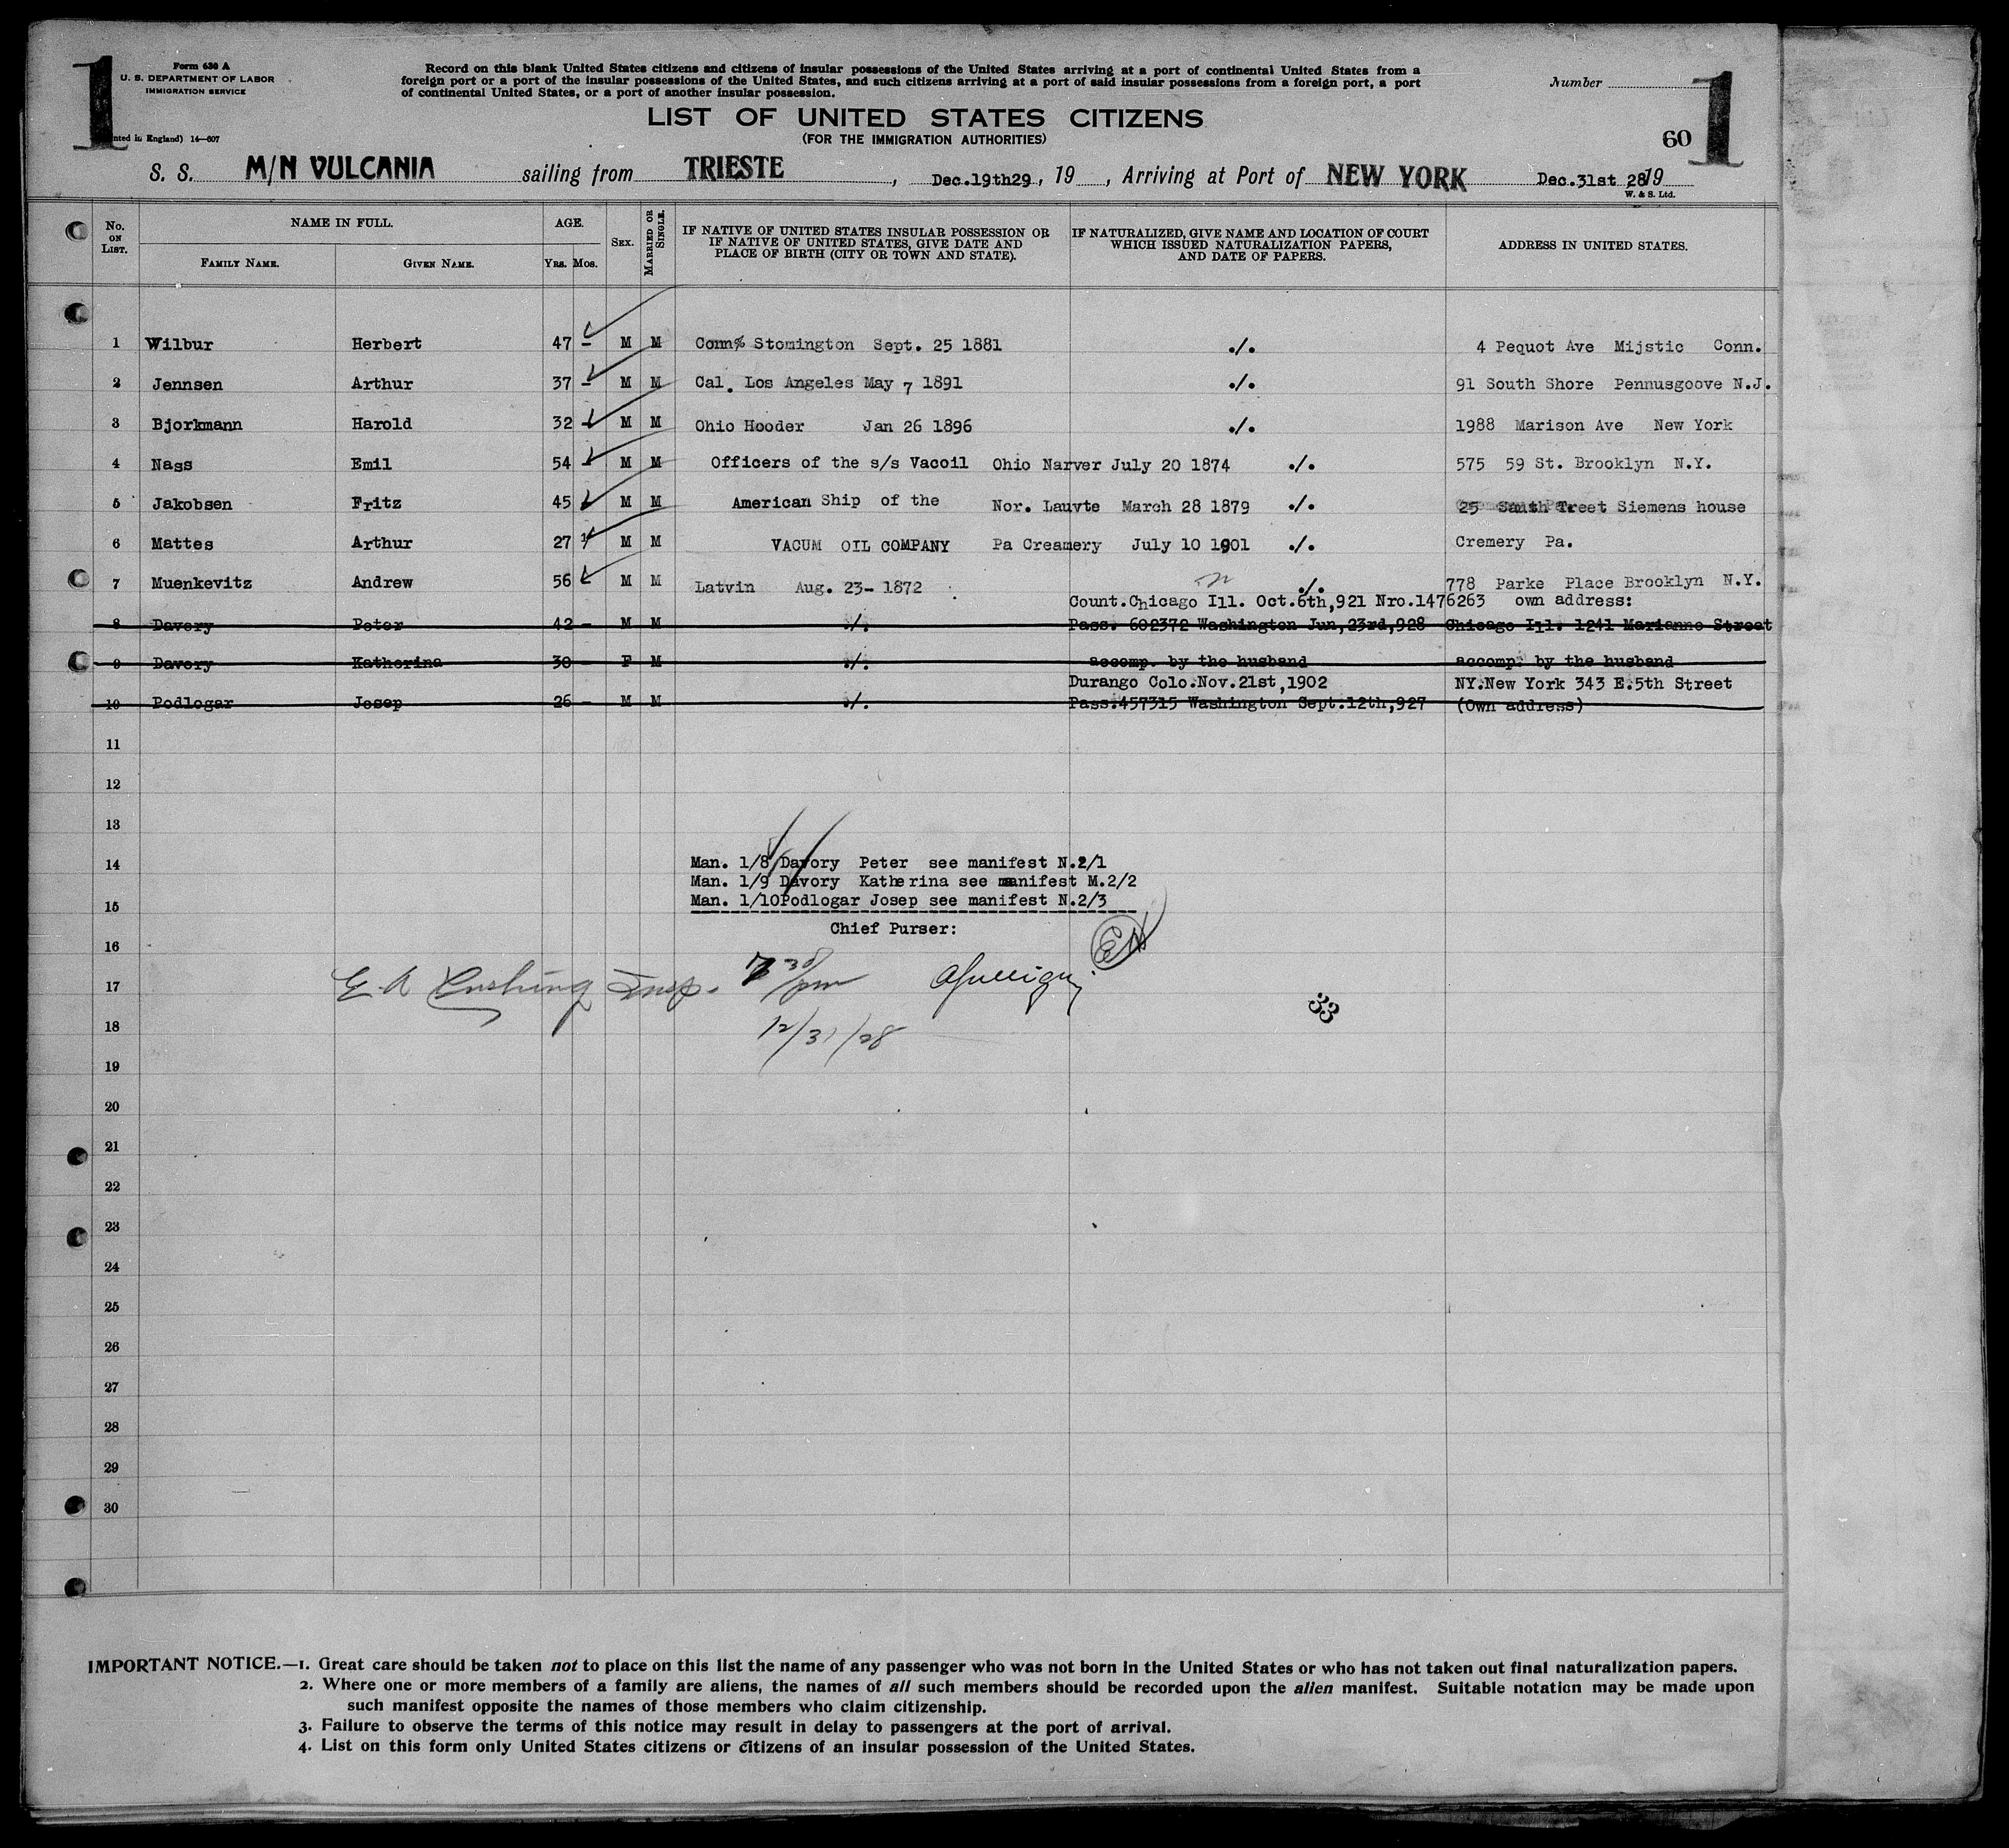 1
Form 630 A
U. S. DEPARTMENT OF LABOR
IMMIGRATION SERVICE
nted in England) 14—607
Record on this blank United States citizens and citizens of insular possessions of the United States arriving at a port of continental United States from a
foreign port or a port of the insular possessions of the United States, and such citizens arriving at a port of said insular possessions from a foreign port, a port
of continental United States, or a port of another insular possession.
Number
1
LIST OF UNITED STATES CITIZENS
(FOR THE IMMIGRATION AUTHORITIES)
60
S. S. M/N VULCANIA sailing from TRIESTE, Dec.19th29, 19 , Arriving at Port of NEW YORK Dec.31st 28 19
W. & S. Ltd.
No. ON LIST. NAME IN FULL. AGE. SEX. MARRIED OR SINGLE. IF NATIVE OF UNITED STATES INSULAR POSSESSION OR IF NATIVE OF UNITED STATES, GIVE DATE AND PLACE OF BIRTH (CITY OR TOWN AND STATE). IF NATURALIZED, GIVE NAME AND LOCATION OF COURT WHICH ISSUED NATURALIZATION PAPERS, AND DATE OF PAPERS. ADDRESS IN UNITED STATES.
FAMILY NAME. GIVEN NAME. YRS. MOS.
1 Wilbur Herbert 47 – M M Conn% Stomington Sept. 25 1881 ./. 4 Pequot Ave Mijstic Conn.
2 Jennsen Arthur 37 – M M Cal. Los Angeles May 7 1891 ./. 91 South Shore Pennusgoove N.J.
3 Bjorkmann Harold 32 – M M Ohio Hooder Jan 26 1896 ./. 1988 Marison Ave New York
4 Nass Emil 54 – M M Officers of the s/s Vacoil Ohio Narver July 20 1874 ./. 575 59 St. Brooklyn N.Y.
5 Jakobsen Fritz 45 M M American Ship of the Nor. Lauvte March 28 1879 ./. 25 South Treet Siemens house
6 Mattes Arthur 27 M M VACUM OIL COMPANY Pa Creamery July 10 1901 ./. Cremery Pa.
7 Muenkevitz Andrew 56 M M Latvin Aug. 23- 1872 ./. 778 Parke Place Brooklyn N.Y.
Count.Chicago Ill. Oct.6th,921 Nro.1476263 own address:
8 Davory Peter 42 – M M ./. Pass. 602372 Washington Jun,23rd,928 Chicago Ill. 1241 Marianne Street
9 Davory Katherina 30 – F M ./. accomp. by the husband accomp. by the husband
Durango Colo.Nov.21st,1902 NY.New York 343 E.5th Street
10 Podlogar Josep 26 – M M ./. Pass.457315 Washington Sept.12th,927 (Own address)
11
12
13
14 Man. 1/8 Davory Peter see manifest N.2/1
Man. 1/9 Davory Katherina see manifest M.2/2
15 Man. 1/10Podlogar Josep see manifest N.2/3
Chief Purser:
16
17 E. A Cushing Insp. 7 30/pm
18 12/31/28
33
19
20
21
22
23
24
25
26
27
28
29
30
IMPORTANT NOTICE.—1. Great care should be taken not to place on this list the name of any passenger who was not born in the United States or who has not taken out final naturalization papers.
2. Where one or more members of a family are aliens, the names of all such members should be recorded upon the alien manifest. Suitable notation may be made upon
such manifest opposite the names of those members who claim citizenship.
3. Failure to observe the terms of this notice may result in delay to passengers at the port of arrival.
4. List on this form only United States citizens or citizens of an insular possession of the United States.